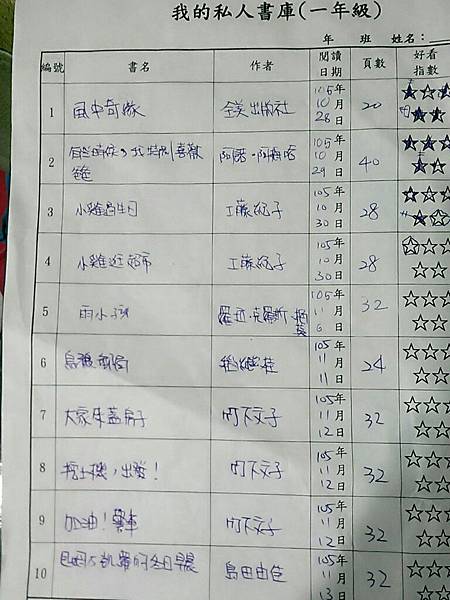 我的私人書庫(一年級)
年 班 姓名：
編號 書名 作者 閱讀日期 頁數 好看指數
1 風中奇緣 全美出版社 105年10月28日 20
2 105年10月29日 40
爸爸
3 小雞過生日 工藤紀子 105年10月30日 28
4 小雞逛超市 工藤紀子 105年10月30日 28
5 雨小孩 105年11月6日 32
6 105年11月11日 24
7 大家來蓋房子 竹下文子 105年11月12日 32
8 挖土機，出發！ 竹下文子 105年11月12日 32
9 加油！賽車 竹下文子 105年11月12日 32
10 島田由佳 105年11月13日 32